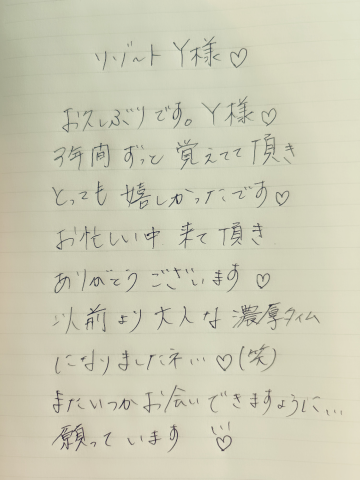 リゾート Y様♡
お久しぶりです。Y様♡
3年間ずっと覚えてて頂き
とっても嬉しかったです♡
お忙しい中来て頂き
ありがとうございます♡
以前より大人な濃厚タイム
になりましたネ…♡(笑)
またいつかお会いできますように…
願っています♡